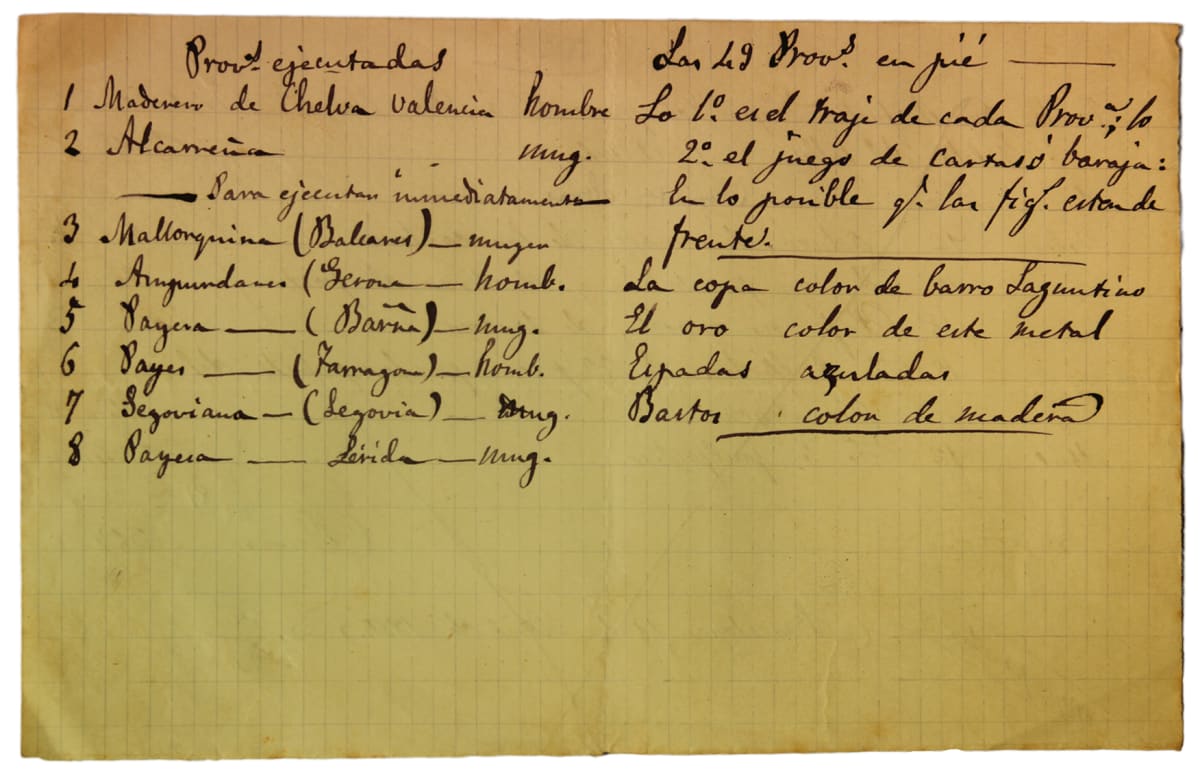 Provˢ. ejecutadas
1 Maderero de Chelva Valencia hombre
2 Alcarreña mug.
— Para ejecutar inmediatamente —
3 Mallorquina (Baleares) — muger
4 Ampurdanes (Gerona — homb.
5 Payesa — (Barñá) — mug.
6 Payes — (Tarragona) — homb.
7 Segoviana — (Segovia) — mug.
8 Payesa — Lérida — mug.
Las 49 Provˢ. en pié —
Lo 1º. es el traje de cada Provᵃ.; lo
2º. el juego de cartas ó baraja:
En lo posible q. las fig. esten de
frente.
La copa color de barro Saguntino
El oro color de este metal
Espadas azuladas
Bastos color de madera